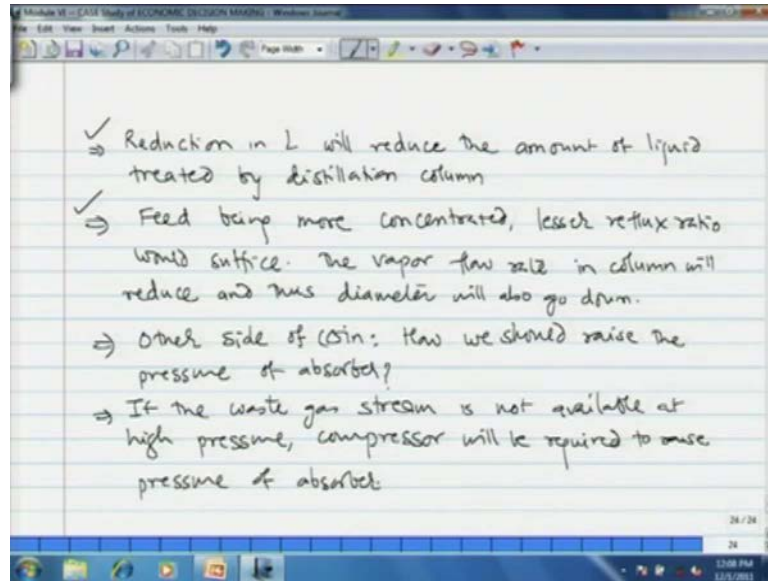 Module VI -- CASE Study of ECONOMIC DECISION MAKING - Windows Journal
File Edit View Insert Actions Tools Help
Page Width
✓ ⇒ Reduction in L will reduce the amount of liquid
treated by distillation column
✓ ⇒ Feed being more concentrated, lesser reflux ratio
would suffice. The vapor flow rate in column will
reduce and thus diameter will also go down.
⇒ Other side of coin: How we should raise the
pressure of absorber?
⇒ If the waste gas stream is not available at
high pressure, compressor will be required to raise
pressure of absorber.
24 / 24
24
12:08 PM
12/1/2011